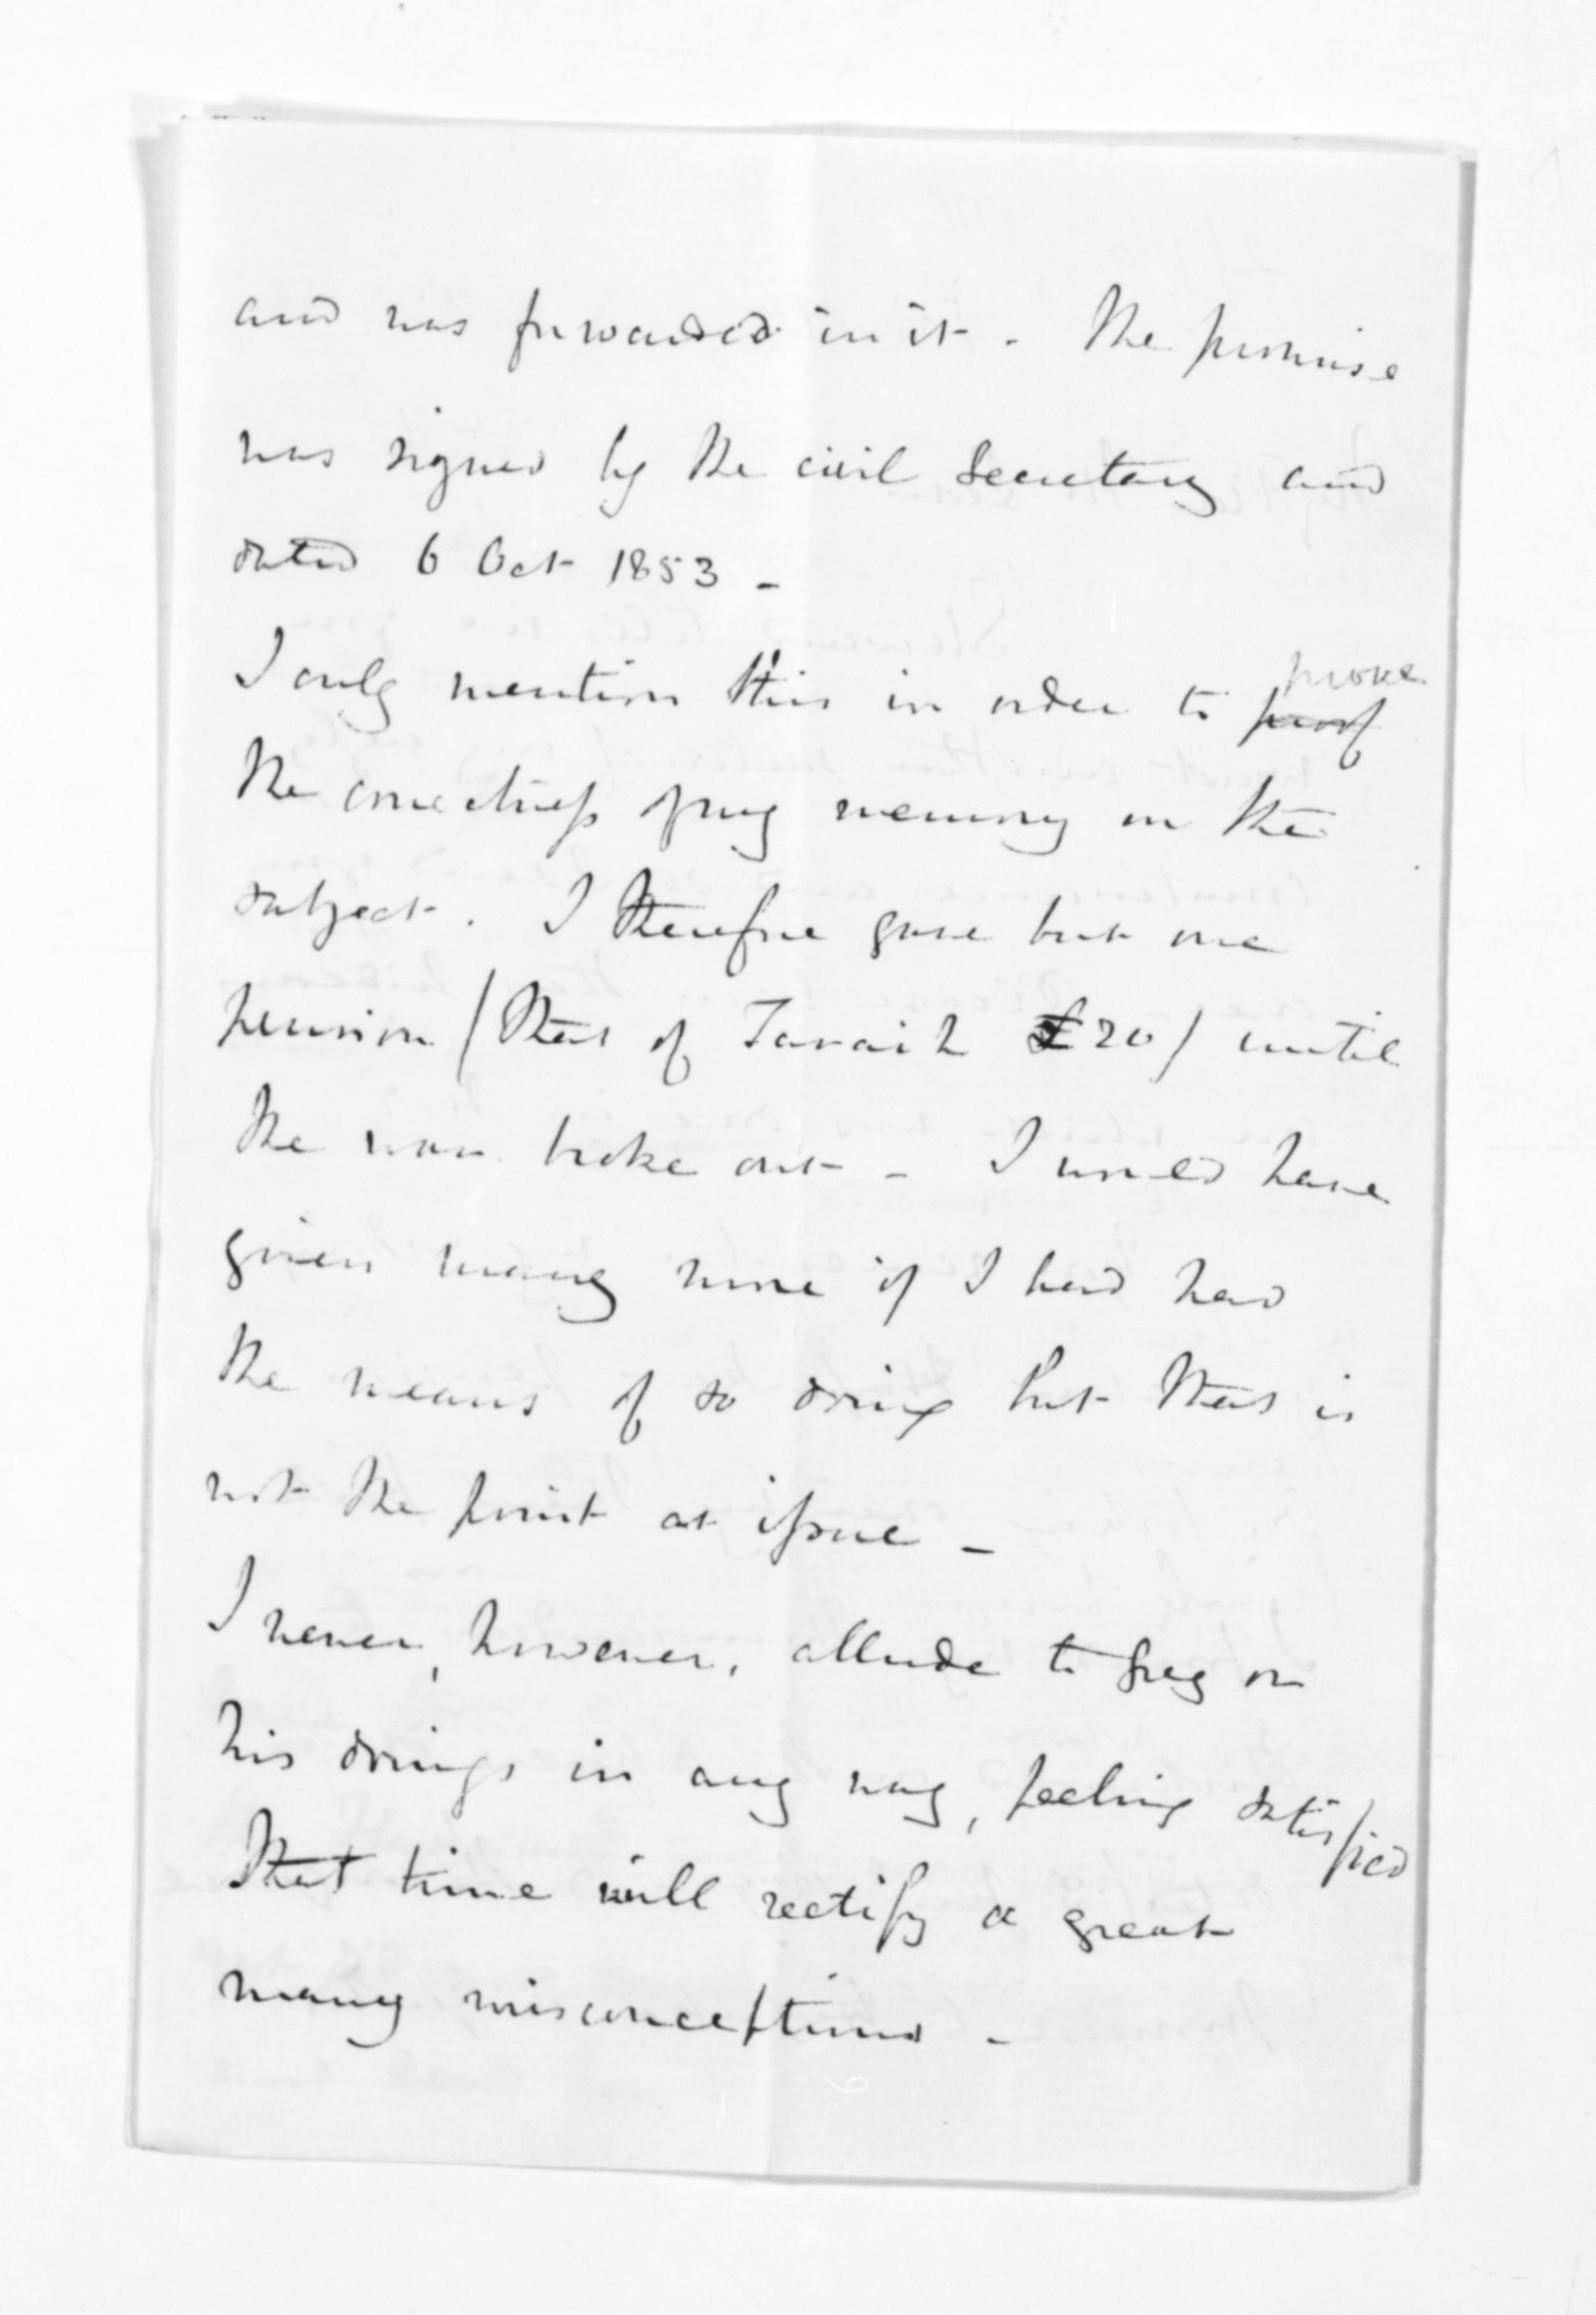 and was forwarded in it. The promise
was signed by the civil Secretary and
dated 6 Oct 1853 -
I only mention this in order to proof prove
the correctness of my memory on the
subject. I therefore gave but one
pension (that of Taraia £20) until
the war broke out - I would have
given many more if I had had
the means of so doing but that is
not the point at issue -
I never, however, allude to Grey or
his doings in any way, feeling satisfied
that time will rectify a great
many misconceptions -